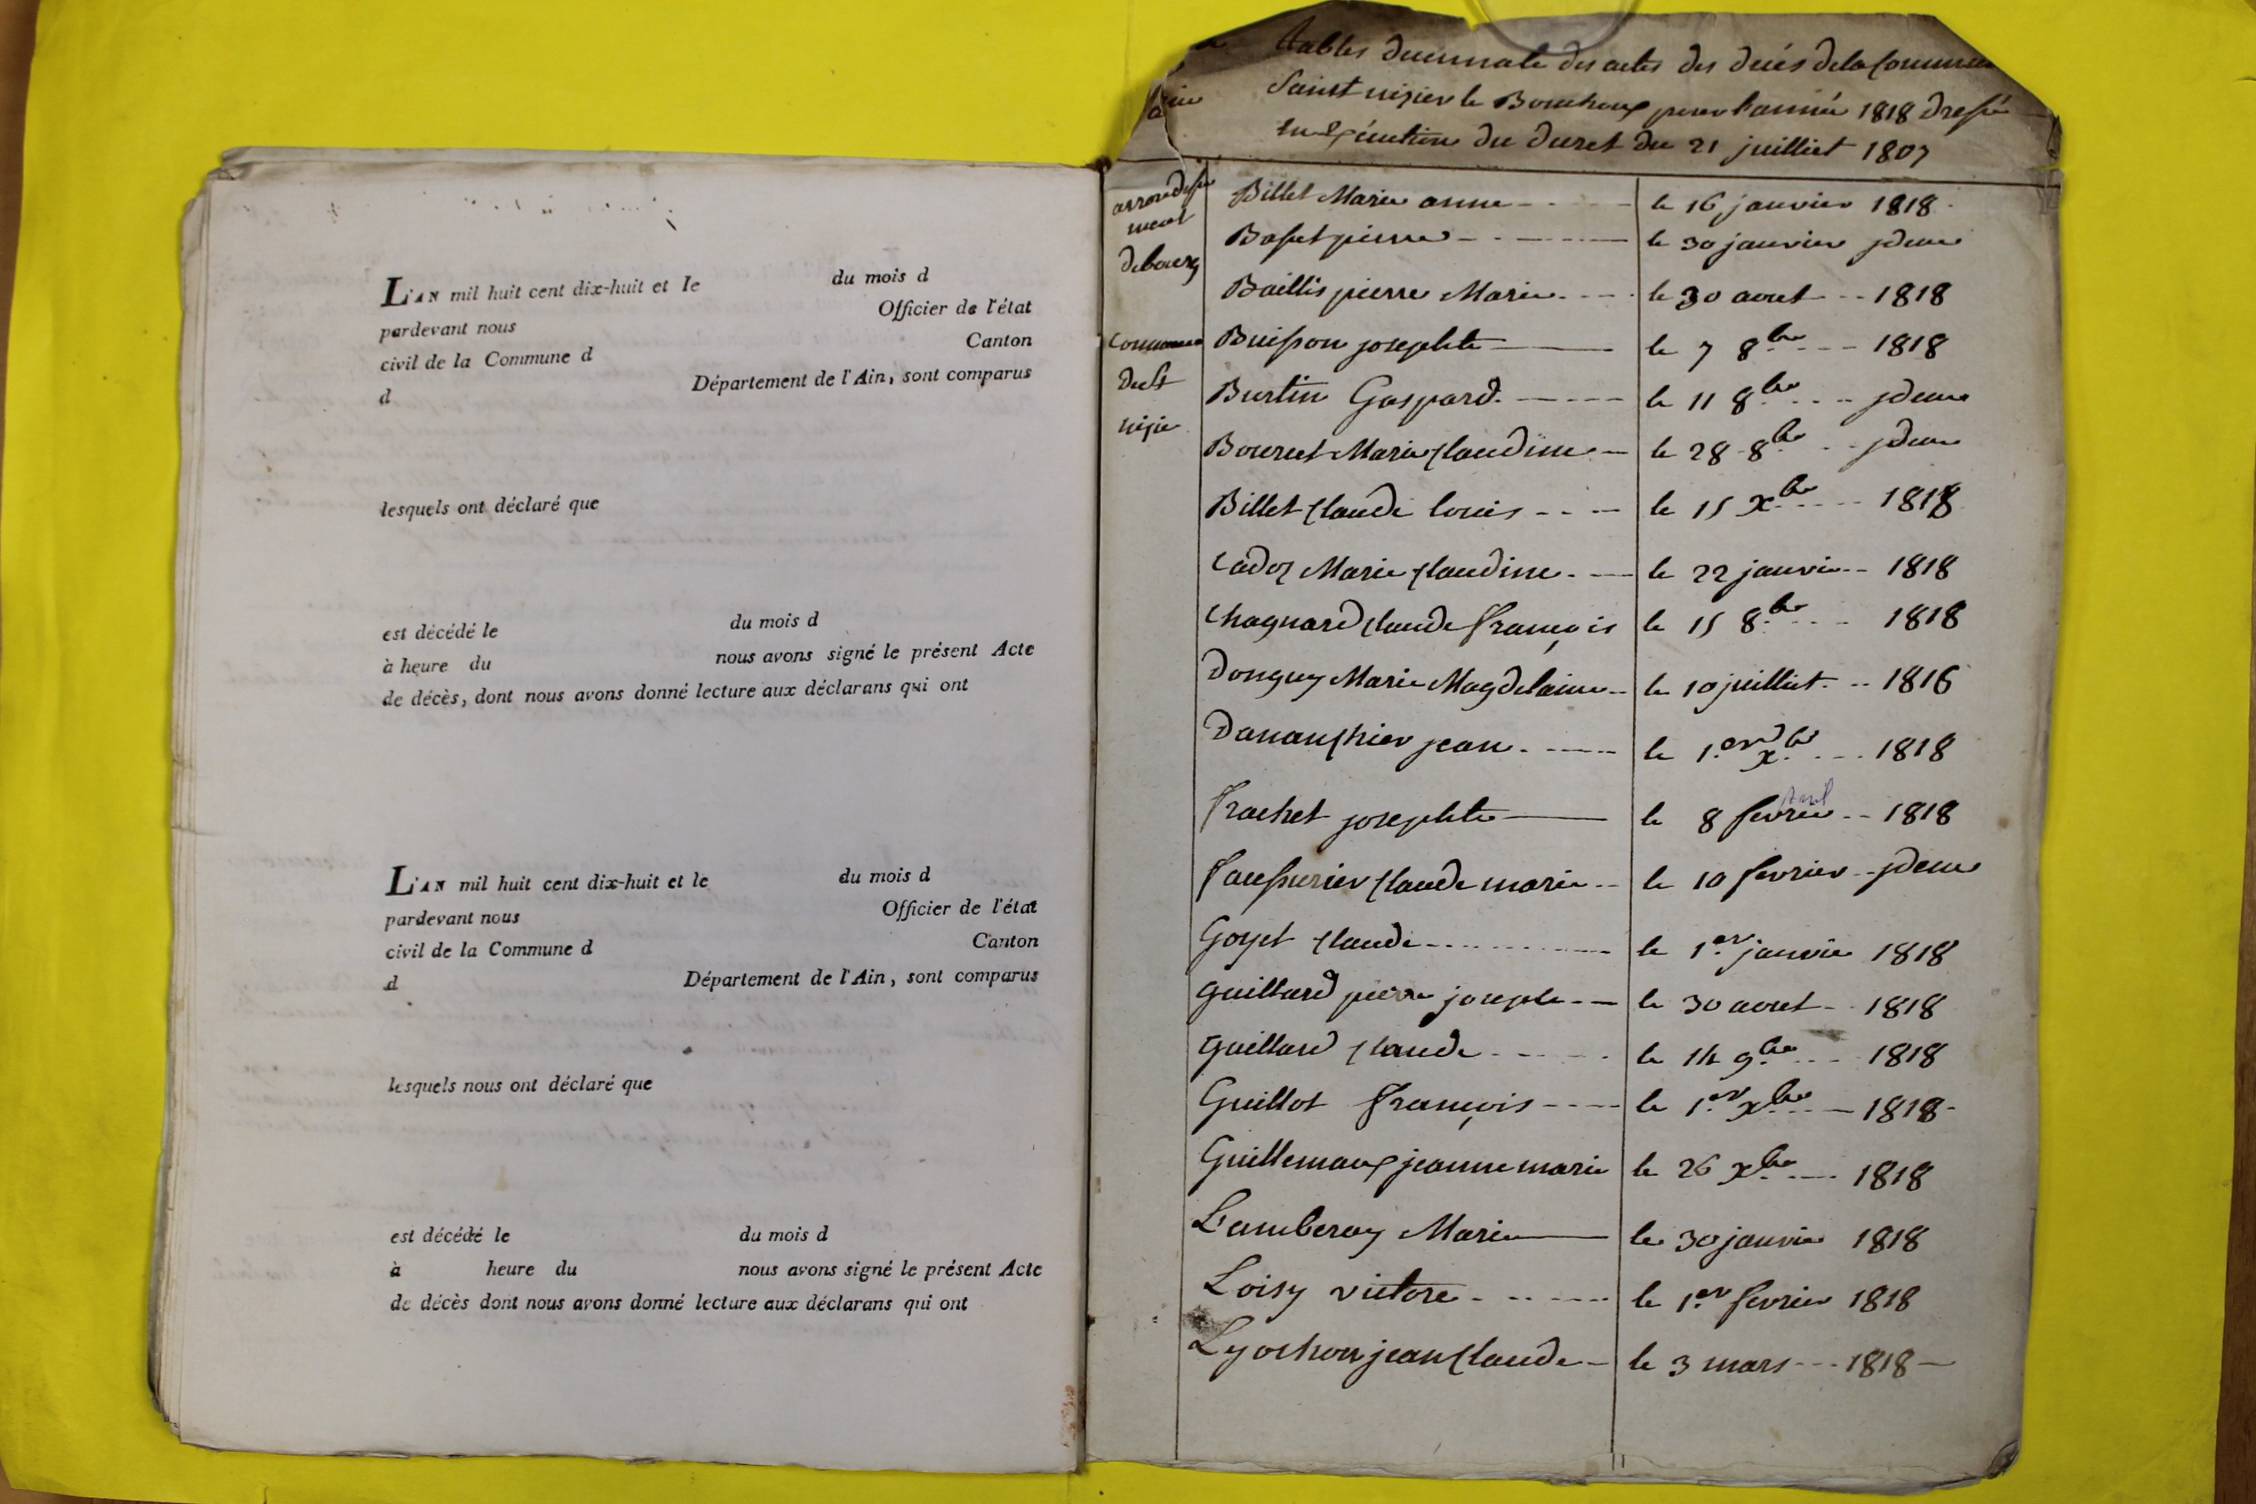 L'AN mil huit cent dix-huit et le du mois d
pardevant nous Officier de l'état
civil de la Commune d Canton
d Département de l'Ain, sont comparus
lesquels ont déclaré que
est décédé le du mois d
à heure du nous avons signé le présent Acte
de décès, dont nous avons donné lecture aux déclarans qui ont
L'AN mil huit cent dix-huit et le du mois d
pardevant nous Officier de l'état
civil de la Commune d Canton
d Département de l'Ain, sont comparus
lesquels nous ont déclaré que
est décédé le du mois d
à heure du nous avons signé le présent Acte
de décès dont nous avons donné lecture aux déclarans qui ont
tables des actes des décés de la Commune
Saint nizier le Bouchoux pour l'année 1818 dressé
en Exécution du decret du 21 juilliet 1807
arrondisse
ment
de bourg
Commune
de St
nizie
Billet Marie anne le 16 janvier 1818
Basset pierre le 30 janvier jdem
Baillis pierre Marie le 30 aout 1818
Buisson josephte le 7 8bre 1818
Burtin Gaspard le 11 8bre jdem
Bouret Marie Claudine le 28 8bre jdem
Billet Claude louis le 15 xbre 1818
Cadoz Marie Claudine le 22 janvie 1818
Chagnard Claude françois le 15 8bre 1818
Donguy Marie Magdelaine le 10 juilliet 1816
Dananchier jean le 1.er xbre 1818
Avril
frachet josephte le 8 fevrie 1818
faussurier Claude marie le 10 fevrier jdem
Goyet Claude le 1.er janvie 1818
guillard pierre joseph le 30 aout 1818
guillard Claude le 14 9bre 1818
Guillot françois le 1.er xbre 1818
Guillemaux jeanne marie le 26 xbre 1818
Lamberay Marie le 30 janvie 1818
Loisy victore le 1.er fevrier 1818
Lyochon jean Claude le 3 mars 1818